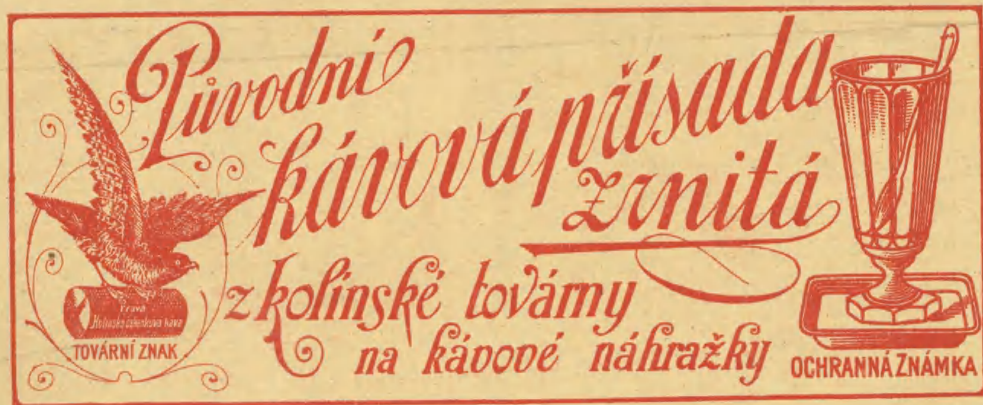 Původní
kávová přísada
zrnitá
z kolínské továrny
na kávové náhražky
Pravá
Kolínská cikorková káva
TOVÁRNÍ ZNAK
OCHRANNÁ ZNÁMKA